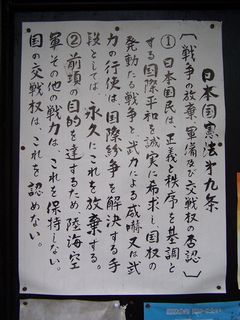 日本国憲法第九条
〔戦争の放棄、軍備及び交戦権の否認〕
①日本国民は、正義と秩序を基調と
する国際平和を誠実に希求し、国権の
発動たる戦争と、武力による威嚇又は武
力の行使は、国際紛争を解決する手
段としては、永久にこれを放棄する。
②前項の目的を達するため、陸海空
軍その他の戦力は、これを保持しない。
国の交戦権は、これを認めない。